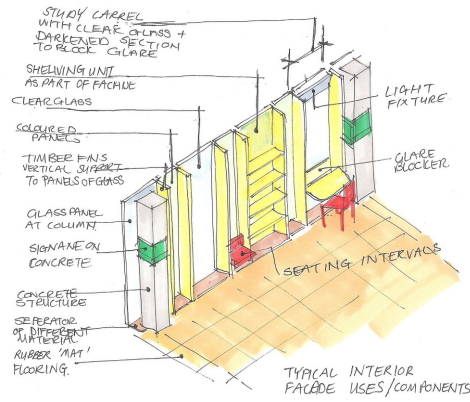 STUDY CARREL
WITH CLEAR GLASS +
DARKENED SECTION
TO BLOCK GLARE
SHELVING UNIT
AS PART OF FACADE
CLEAR GLASS
COLOURED
PANELS
TIMBER FINS
VERTICAL SUPPORT
TO PANELS OF GLASS
GLASS PANEL
AT COLUMN
SIGNAGE ON
CONCRETE
CONCRETE
STRUCTURE
SEPERATOR
OF DIFFERENT
MATERIAL
RUBBER 'MAT'
FLOORING.
LIGHT
FIXTURE
GLARE
BLOCKER
SEATING INTERVALS
TYPICAL INTERIOR
FACADE USES/COMPONENTS